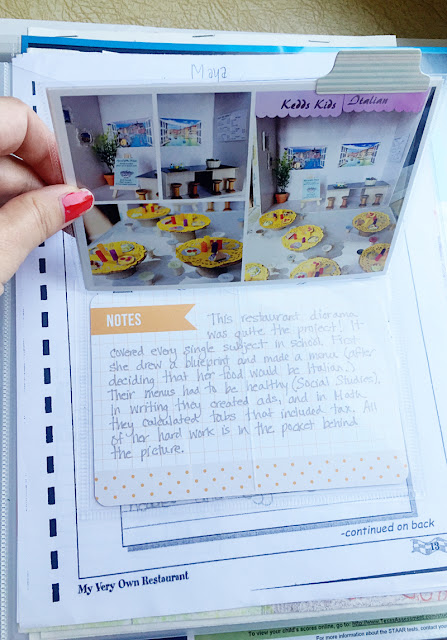 Maya
Kedds Kids Italian
NOTES
This restaurant diorama
was quite the project! It
covered every single subject in school. First
she drew a blueprint and made a menu (after
deciding that her food would be Italian.)
Their menus had to be healthy (Social Studies),
in writing they created ads, and in Math,
they calculated tabs that included tax. All
of her hard work is in the pocket behind
the picture.
-continued on back
13
My Very Own Restaurant
To view your child's scores online, go to: http://www.TexasAssessment.
For more information about the STAAR tests, contact your